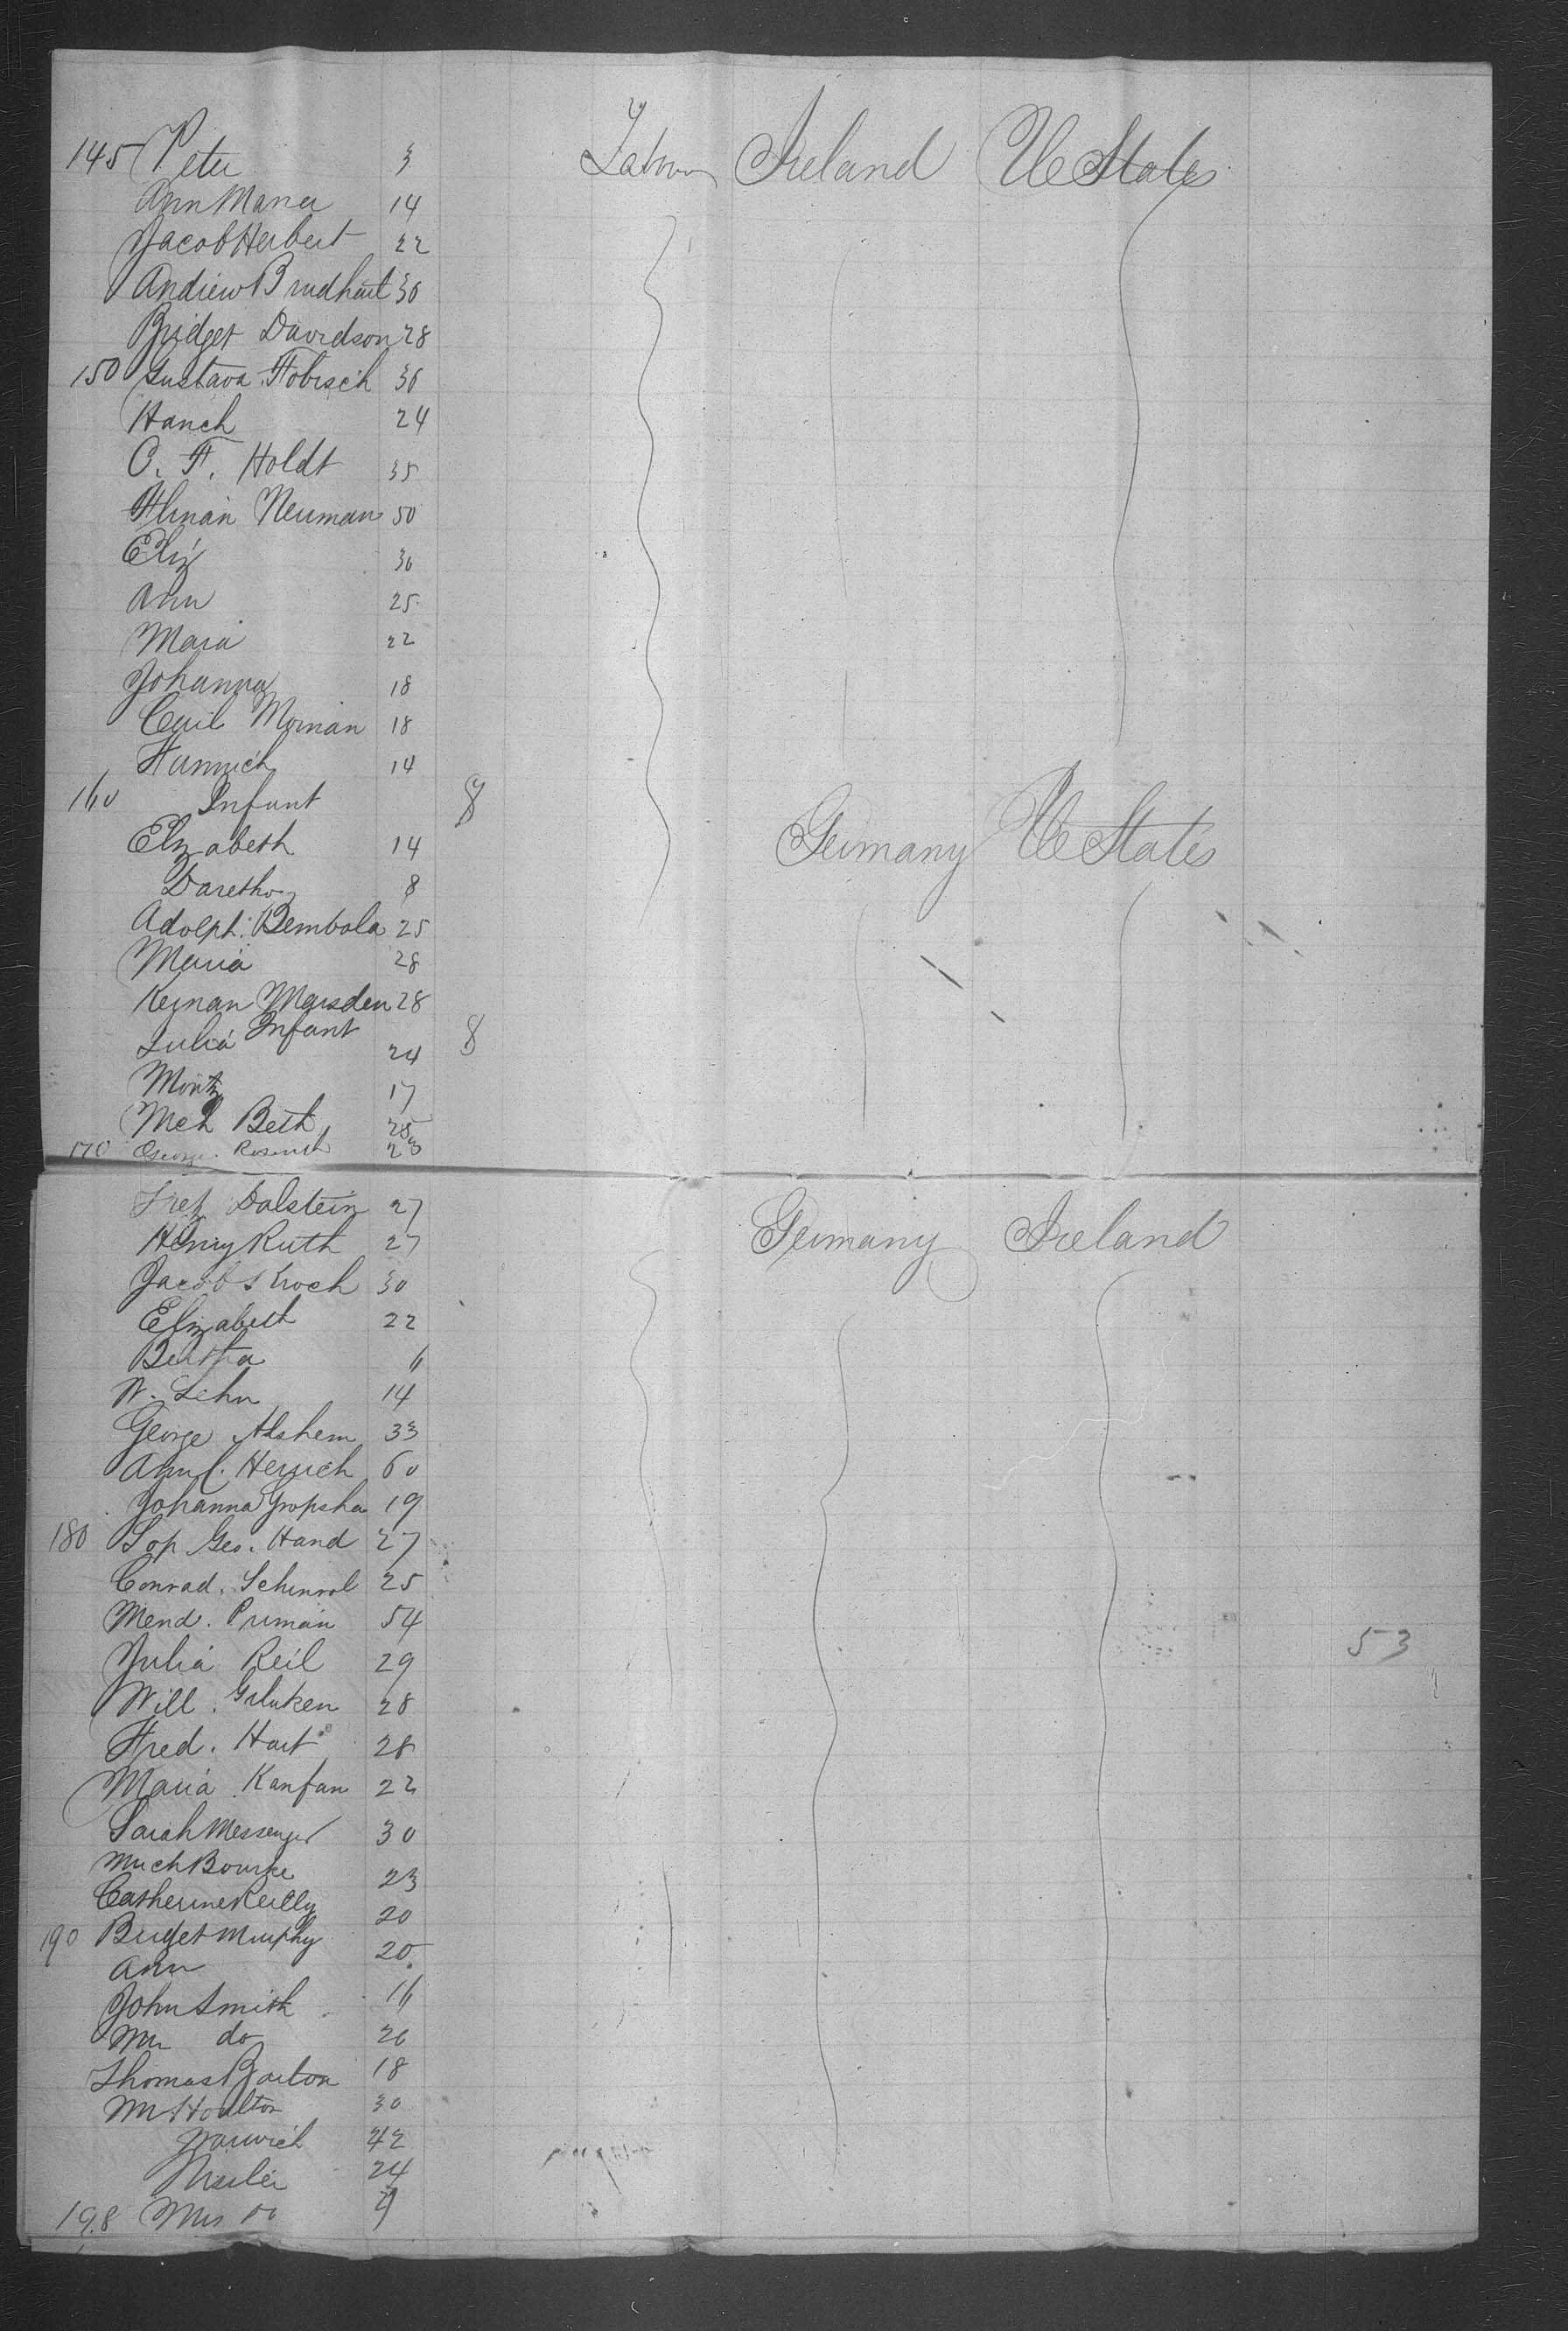 145 Peter 3 Labour Ireland U States
Ann Maria 14
Jacob Herbert 22
Andrew Brudhart 30
Bridget Davidson 28
150 Gustava Fobisch 36
Hanch 24
C. F. Holdt 35
Neuman 50
Eliz 30
Ann 25
Maria 22
Johanna 18
Mornan 18
Hannrich 14
160 Infant 8
Germany U States
Elizabeth 14
Daretho 8
Adolph. Bembola 25
Maria 28
Kernan Marsden 28
Infant 8
Julia 24
Moritz 17
Mch Beth 25
170 George 23
Fretz Dalstein 27 Germany Ireland
Henry Ruth 27
Jacob S Kroch 30
Elizabeth 22
Bertha 11
W. Lehn 14
George Alshem 33
Ann C. Herrich 60
Johanna Gropsha 19
180 Sop Geo. Hand 27
Conrad. 25
Mend. Pruman 54
53
Julia Reil 29
Will. 28
Fred. Hart 28
Maria Kanfan 22
Sarah Messenger 30
Mich Bourke 23
Catherine Reilly 20
190 Bridget Murphy 20
Ann
John Smith 11
Mr do 26
Thomas Barton 18
Mr Houlton 30
Warwick 42
24
198 Mrs Do